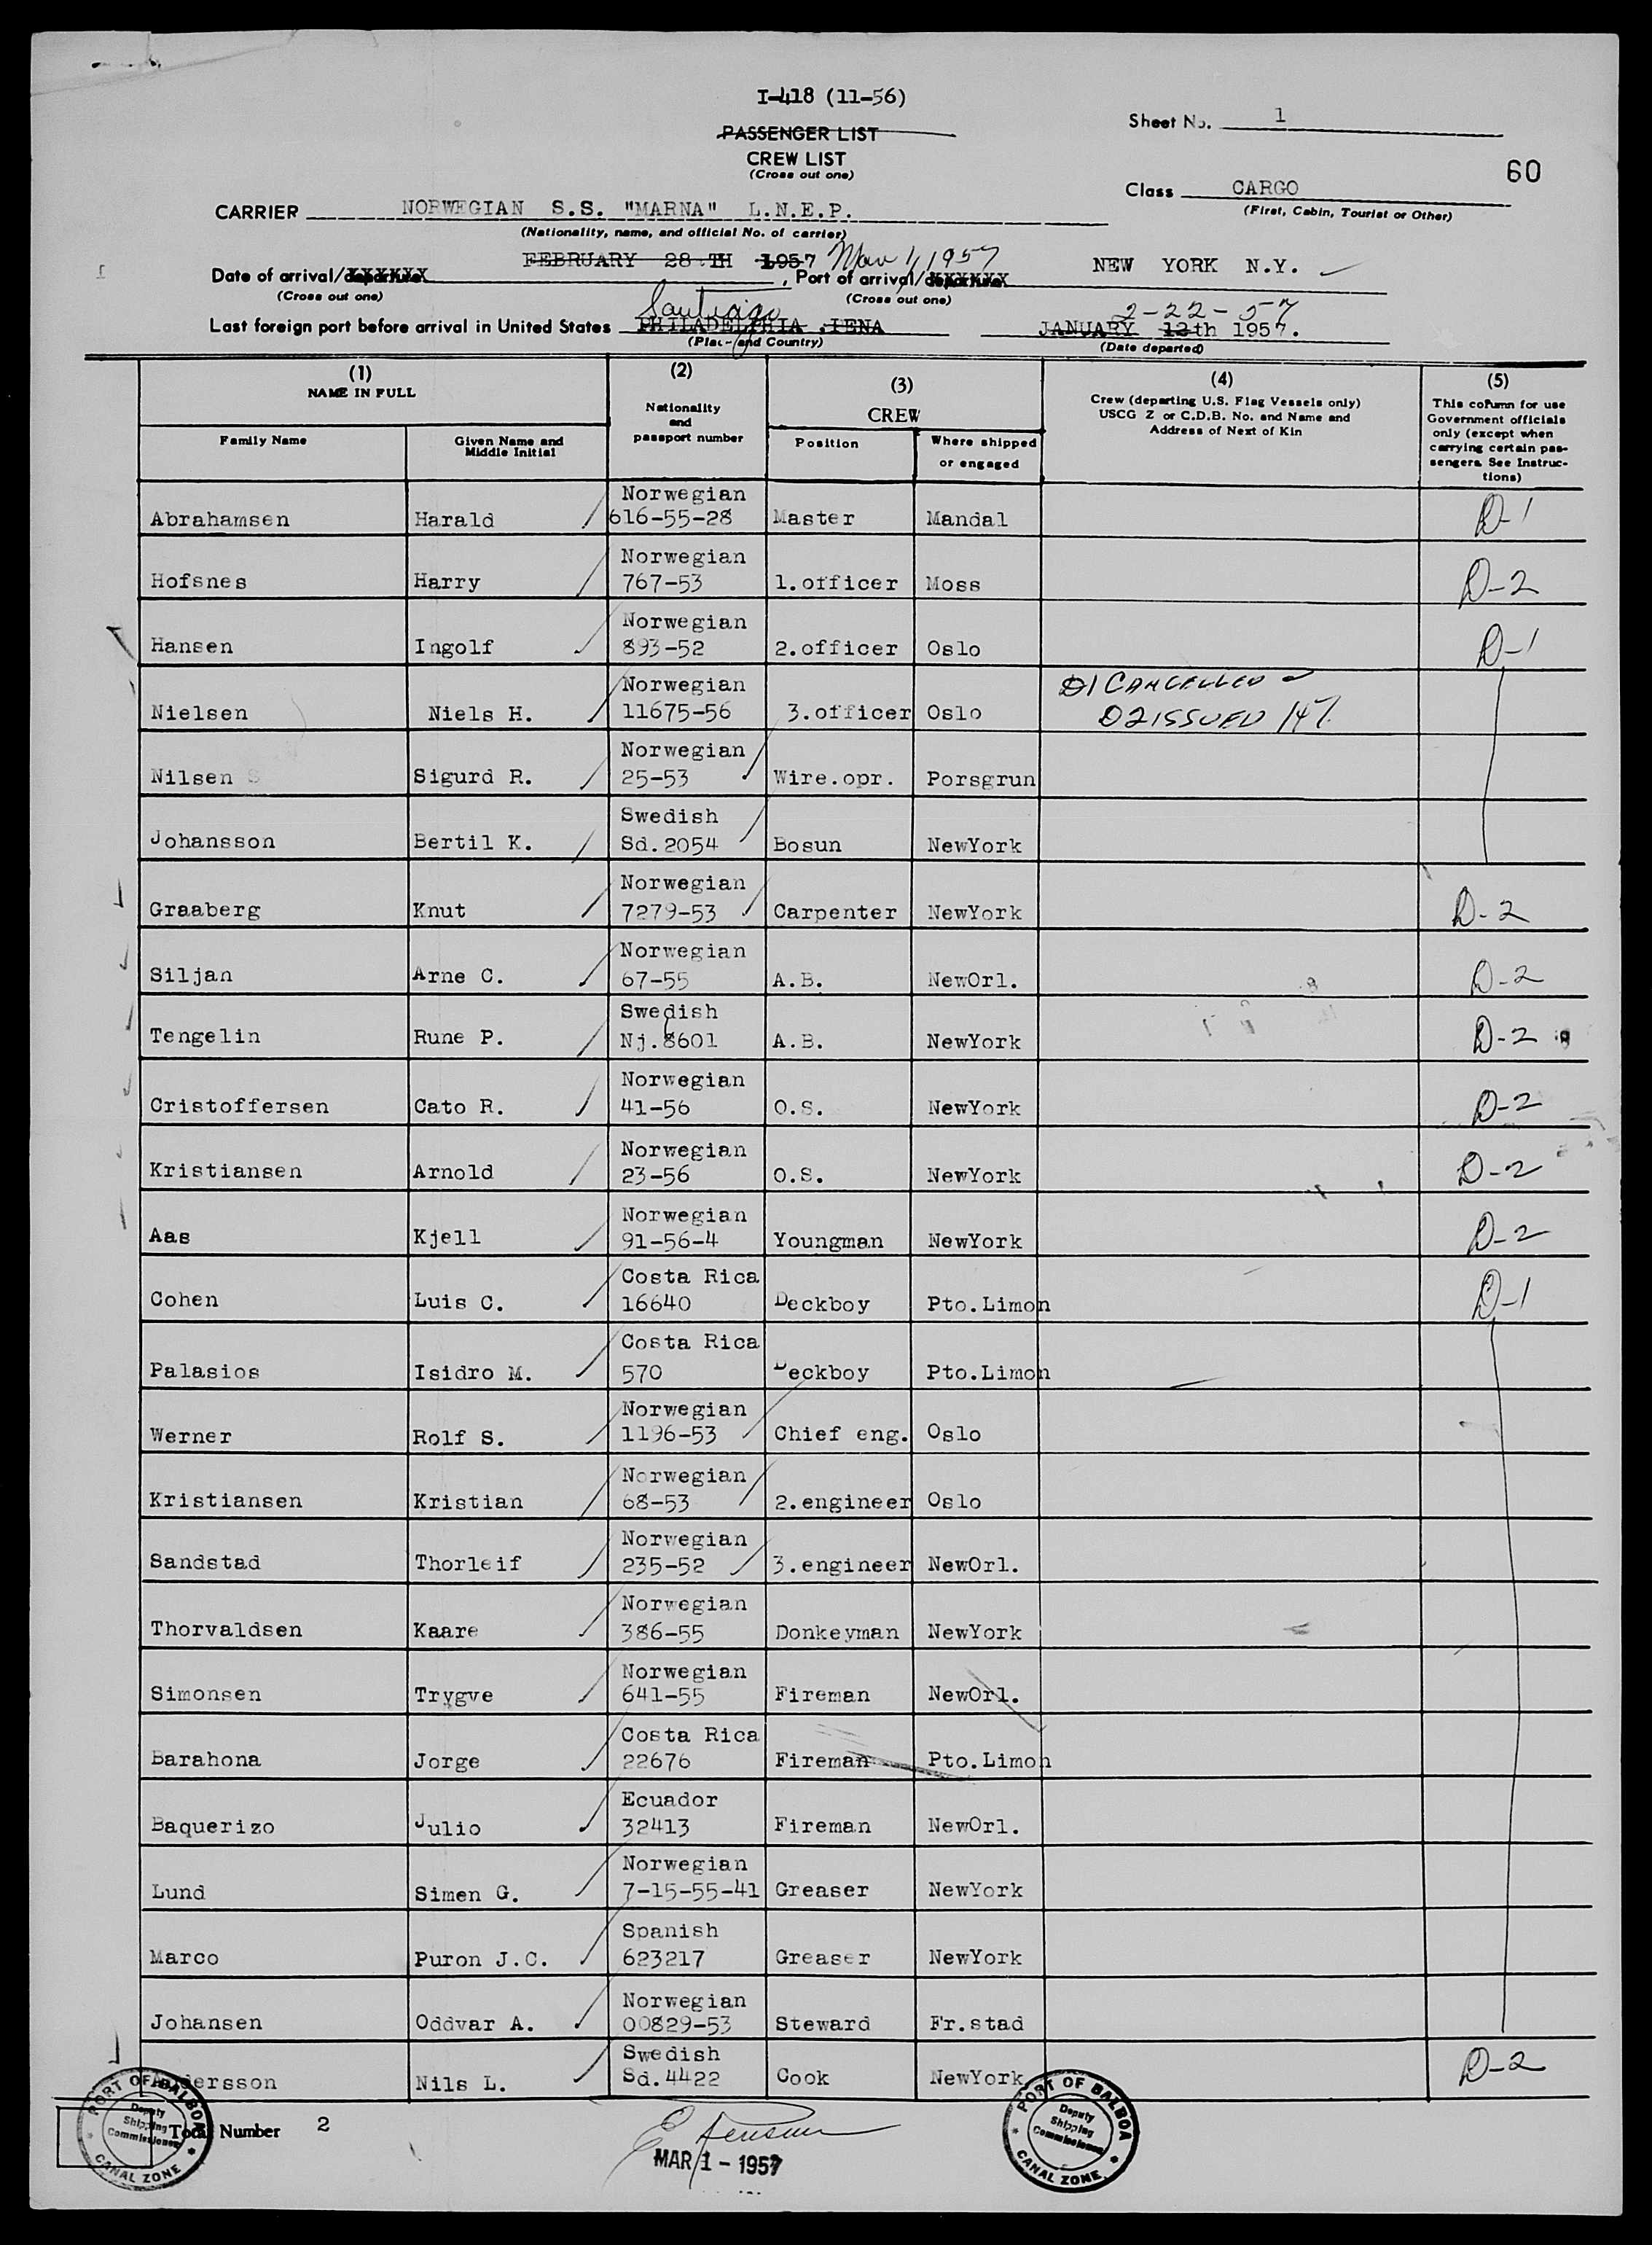 I-418 (11-56)
PASSENGER LIST
CREW LIST
(Cross out one)
Sheet No. 1
60
Class CARGO
(First, Cabin, Tourist or Other)
CARRIER NORWEGIAN S.S. "MARNA" L.N.E.P.
(Nationality, name, and official No. of carrier)
FEBRUARY 28.TH 1957 Mar 1, 1957
Date of arrival/departure , Port of arrival/departure NEW YORK N.Y.
(Cross out one) (Cross out one)
Santiago 2-22-57
Last foreign port before arrival in United States PHILADELPHIA .IENA JANUARY 12th 1957.
(Place and Country) (Date departed)
(1) NAME IN FULL
Family Name
Given Name and Middle Initial
(2) Nationality and passport number
(3) CREW
Position
Where shipped or engaged
(4) Crew (departing U.S. Flag Vessels only) USCG Z or C.D.B. No. and Name and Address of Next of Kin
(5) This column for use Government officials only (except when carrying certain passengers. See Instructions)
Abrahamsen Harald Norwegian 616-55-28 Master Mandal D-1
Hofsnes Harry Norwegian 767-53 1.officer Moss D-2
Hansen Ingolf Norwegian 893-52 2.officer Oslo D-1
Nielsen Niels H. Norwegian 11675-56 3.officer Oslo D1 CANCELLED D2 ISSUED
Nilsen Sigurd R. Norwegian 25-53 Wire.opr. Porsgrun
Johansson Bertil K. Swedish Sd.2054 Bosun NewYork
Graaberg Knut Norwegian 7279-53 Carpenter NewYork D-2
Siljan Arne C. Norwegian 67-55 A.B. NewOrl. D-2
Tengelin Rune P. Swedish Nj.8601 A.B. NewYork D-2
Cristoffersen Cato R. Norwegian 41-56 O.S. NewYork D-2
Kristiansen Arnold Norwegian 23-56 O.S. NewYork D-2
Aas Kjell Norwegian 91-56-4 Youngman NewYork D-2
Cohen Luis C. Costa Rica 16640 Deckboy Pto.Limon D-1
Palasios Isidro M. Costa Rica 570 Deckboy Pto.Limon
Werner Rolf S. Norwegian 1196-53 Chief eng. Oslo
Kristiansen Kristian Norwegian 68-53 2.engineer Oslo
Sandstad Thorleif Norwegian 235-52 3.engineer NewOrl.
Thorvaldsen Kaare Norwegian 386-55 Donkeyman NewYork
Simonsen Trygve Norwegian 641-55 Fireman NewOrl.
Barahona Jorge Costa Rica 22676 Fireman Pto.Limon
Baquerizo Julio Ecuador 32413 Fireman NewOrl.
Lund Simen G. Norwegian 7-15-55-41 Greaser NewYork
Marco Puron J.C. Spanish 623217 Greaser NewYork
Johansen Oddvar A. Norwegian 00829-53 Steward Fr.stad
Andersson Nils L. Swedish Sd.4422 Cook NewYork D-2
PORT OF BALBOA Deputy Shipping Commissioner CANAL ZONE
Total Number 2
MAR 1 - 1957
PORT OF BALBOA Deputy Shipping Commissioner CANAL ZONE